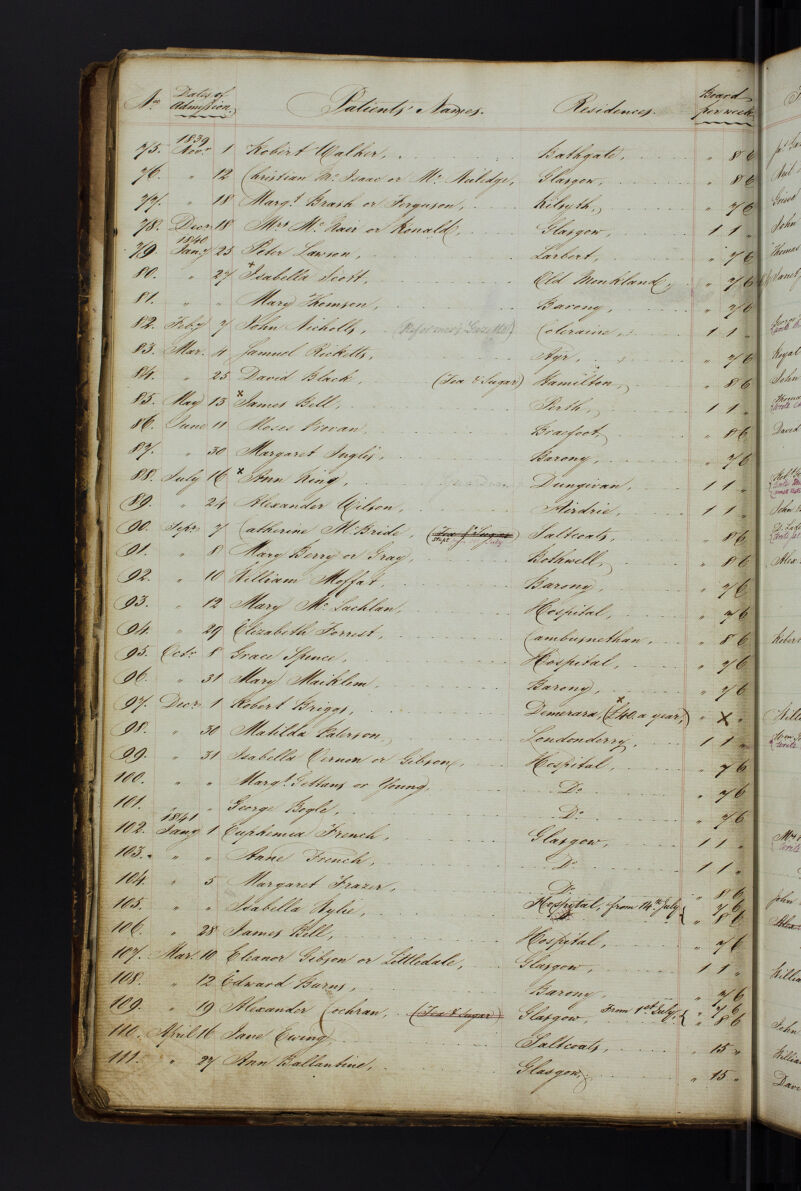 Nos Dates of Admission. Patients' Names. Residences. Board per week
75. 1839 Novr. 1 Robert Walker, Bathgate, " 8 6
76. " 12 Christian Mc. Isaac or Mc. Glasgow, " 8 6
77. " 18 Margt. Brash or Ferguson, Kilsyth, " 7 6
78. Decr. 18 Mrs. Mc. Nair or Ronald, Glasgow, 1 1 "
79. 1840 Jany. 25 Peter Lawson, Larbert, " 7 6
80. " 27 x Isabella Scott, Old Monkland, " 7 6
81. " " Mary Thomson, Barony, " 7 6
82. Feby. 7 John Nicholls, Coleraine, 1 1 "
83. Mar. 4 Samuel Ricketts, Ayr, " 7 6
84. " 25 David Black, (Tea & Sugar) Hamilton, " 8 6
85. May 13 x James Bell, Perth, 1 1 "
86. June 11 Moses Provan, Braefoot, " 8 6
87. " 30 Margaret Inglis, Barony, " 7 6
88. July 16 x Ann King, Dungivan, 1 1 "
89. " 24 Alexander Wilson, Airdrie, 1 1 "
90. Sepr. 7 Catherine Mc. Bride, (Tea & Sugar) Saltcoats, " 8 6
91. " 8 Mary Berry or Gray, Bothwell, " 8 6
92. " 10 William Moffat, Barony, " 7 6
93. " 12 Mary Mc. Lachlan, Hospital, " 7 6
94. " 29 Elizabeth Forrest, Cambusnethan, " 8 6
95. Octr. 8 Grace Spence, Hospital, " 7 6
96. " 31 Mary Maiklem, Barony, " 7 6
97. Decr. 1 Robert Briggs, Demerara, (£40 a year,) x " X "
98. " 30 Matilda Paterson, Londonderry, 1 1 "
99. " 31 Isabella Vernon or Gibson, Hospital, " 7 6
100. " " Margt. or Young, Do. " 7 6
101. " George Bogle, Do. " 7 6
102. 1841 Jany 1 Euphemia French, Glasgow, 1 1 "
103. " " Anne French, Do. 1 1 "
104. " 5 Margaret Frazer, Do. " 8 6
105. " " Isabella Wylie, Hospital, from 14th July, { " 7 6 " 8 6
106. " 28 James Bell, Hospital, " 7 6
107. Mar. 10 Eleanor Gibson or Littledale, Glasgow, 1 1 "
108. " 12 Edward Burns, Barony, " 7 6
109. " 19 Alexander Cochran, (Tea & Sugar) Glasgow, From 1st. July, { " 7 6 " 8 6
110. April 16 Jane Ewing Saltcoats, " 15 "
111. " 27 Ann Ballantine, Glasgow, " 15 "